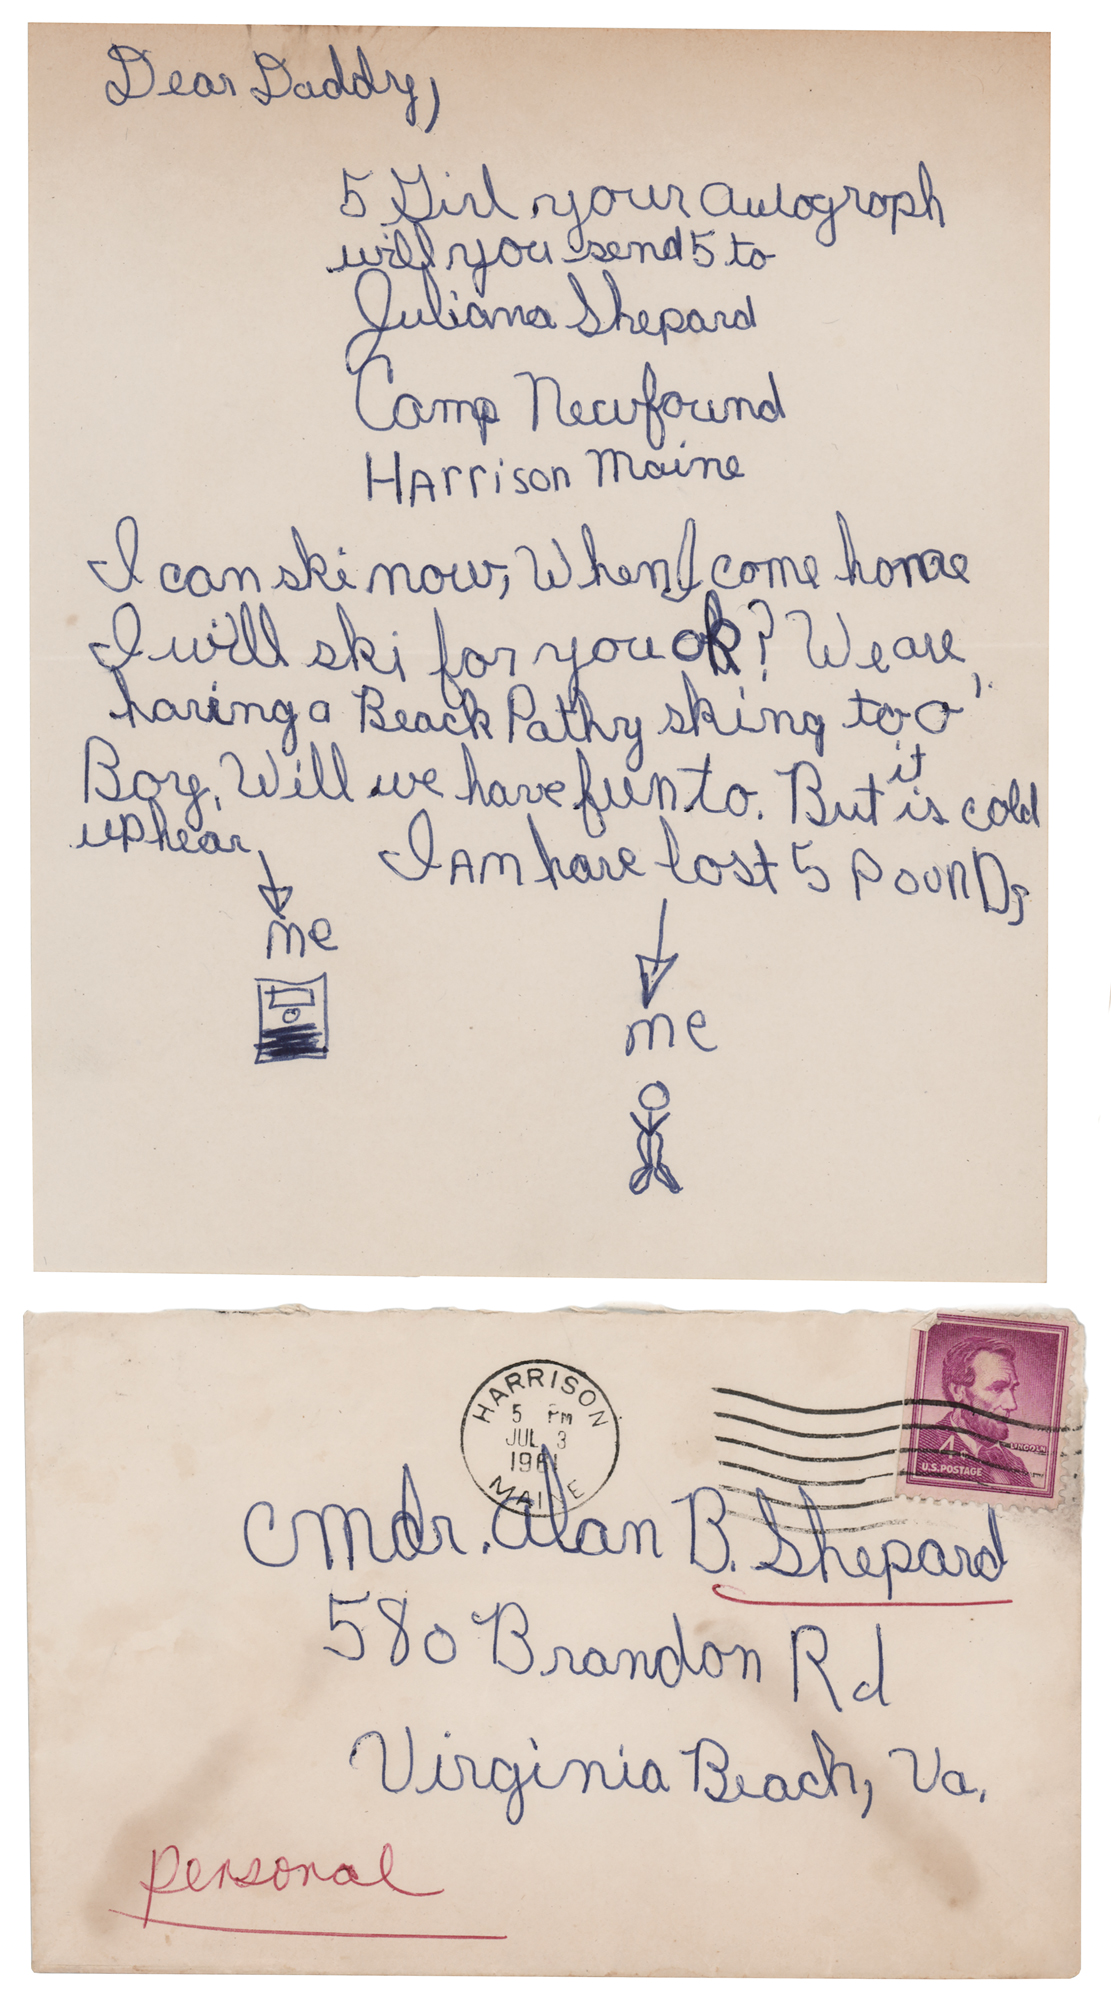 Dear Daddy,
5 Girl your autograph
will you send 5 to
Juliana Shepard
Camp Newfound
HArrison Maine
I can ski now, When I come home
I will ski for you ok? We are
having a Beack Pathy skiing too
Boy, Will we have fun to. But it is cold
up hear,
I AM have lost 5 PounDs
me
me
HARRISON
5 PM
JUL 3
1961
MAINE
LINCOLN
4¢
U.S. POSTAGE
Cmdr. Alan B. Shepard
580 Brandon Rd
Virginia Beach, Va.
personal